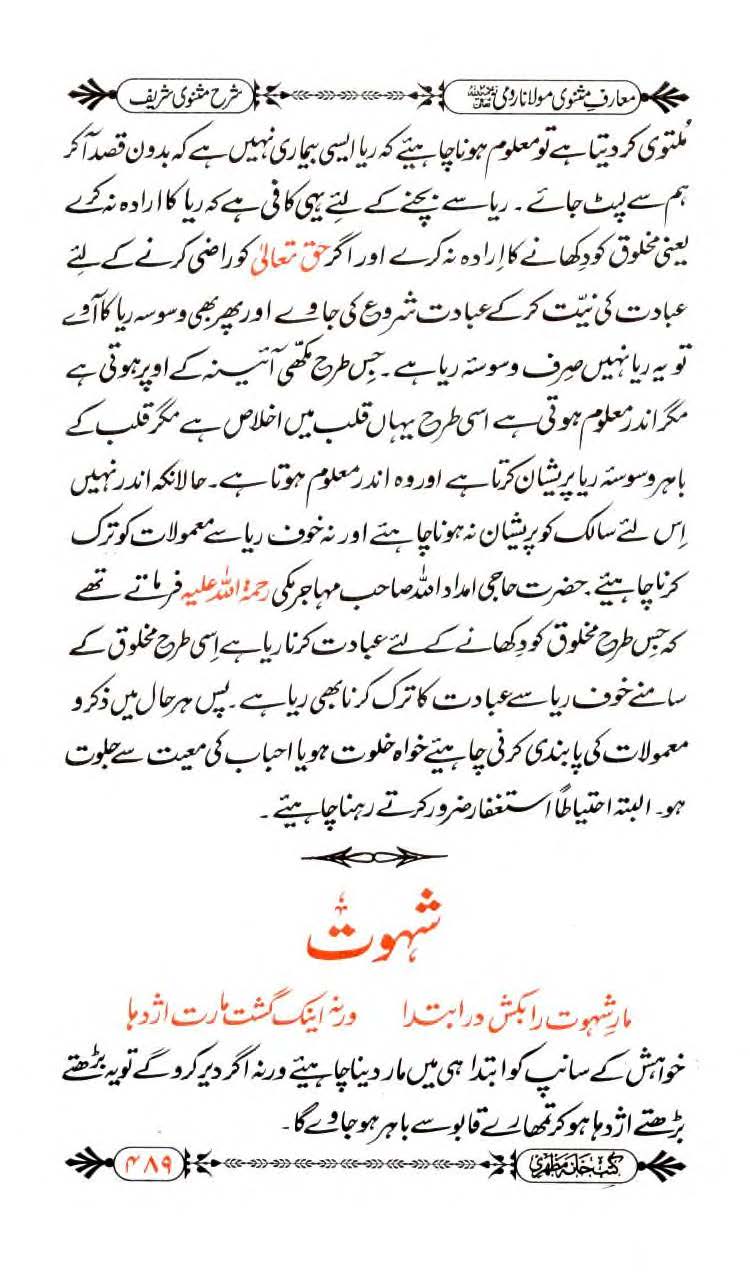 معارفِ مثنوی مولانا رومی
شرح مثنوی شریف
مُلتوی کر دیتا ہے تو معلوم ہونا چاہیئے کہ ریا ایسی بیماری نہیں ہے کہ بدون قصد آ کر
ہم سے لپٹ جائے ۔ ریا سے بچنے کے لئے یہی کافی ہے کہ ریا کا ارادہ نہ کرے
یعنی مخلوق کو دِکھانے کا اِرادہ نہ کرے اور اگر حق تعالیٰ کو راضی کرنے کے لئے
عبادت کی نیّت کر کے عبادت شروع کی جاوے اور پھر بھی وسوسہ ریا کا آوے
تو یہ ریا نہیں صِرف وسوسۂ ریا ہے ۔ جِس طرح مکّھی آئینہ کے اوپر ہوتی ہے
مگر اندر معلوم ہوتی ہے اسی طرح یہاں قلب میں اخلاص ہے مگر قلب کے
باہر وسوسۂ ریا پریشان کرتا ہے اور وہ اندر معلوم ہوتا ہے۔ حالانکہ اندر نہیں
اِس لئے سالک کو پریشان نہ ہونا چاہیئے اور نہ خوف ریا سے معمولات کو ترک
کرنا چاہیئے ۔ حضرت حاجی امداد اللہ صاحب مہاجر مکی رحمۃ اللہ علیہ فرماتے تھے
کہ جِس طرح مخلوق کو دِکھانے کے لئے عبادت کرنا ریا ہے اِسی طرح مخلوق کے
سامنے خوف ریا سے عبادت کا ترک کرنا بھی ریا ہے ۔ پس ہر حال میں ذکر و
معمولات کی پابندی کرنی چاہیئے خواہ خلوت ہو یا احباب کی معیت سے جلوت
ہو۔ البتہ احتیاطاً استغفار ضرور کرتے رہنا چاہیئے ۔
شہوت
مارِ شہوت را بکش در ابتدا ورنہ اینک گشت مارت اژدہا
خواہش کے سانپ کو ابتدا ہی میں مار دینا چاہیئے ورنہ اگر دیر کرو گے تو یہ بڑھتے
بڑھتے اژدہا ہو کر تمھارے قابو سے باہر ہو جاوے گا ۔
کتب خانہ مظہری
۴۸۹